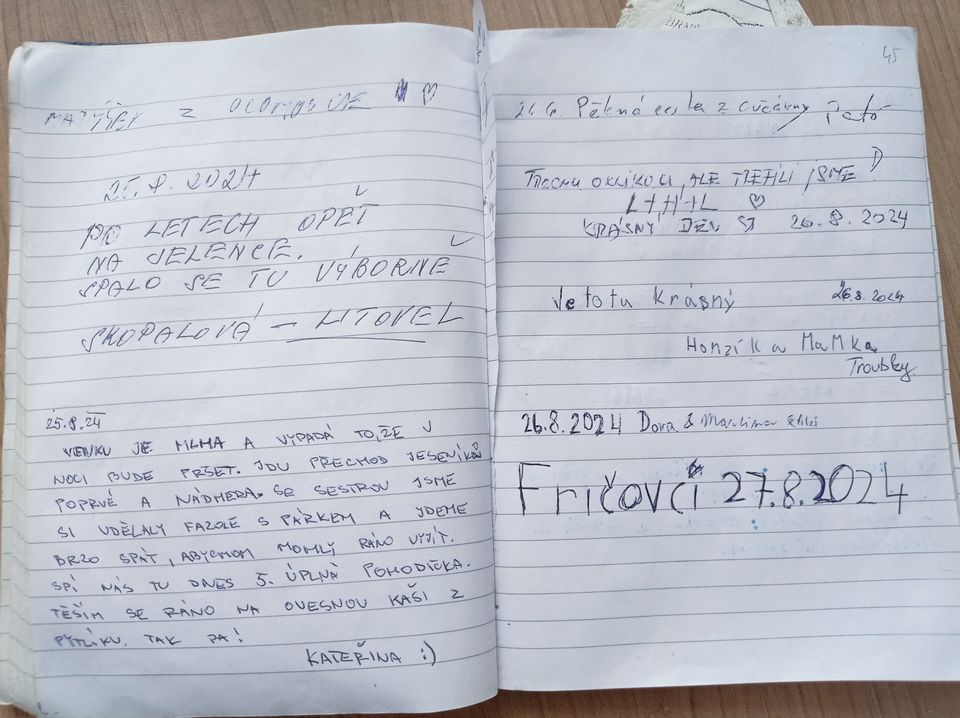 MATÝSEK Z OLOMOUCE ♡
25.8.2024
PO LETECH OPĚT
NA JELENCE.
SPALO SE TU VÝBORNĚ
SKOPALOVÁ – LITOVEL
25.8.24
VENKU JE MLHA A VYPADÁ TO, ŽE V
NOCI BUDE PRŠET. JDU PŘECHOD JESENÍKŮ
POPRVÉ A NÁDHERA. SE SESTROU JSME
SI UDĚLALY FAZOLE S PÁRKEM A JDEME
BRZO SPÁT, ABYCHOM MOHLY RÁNO VYJÍT.
SPÍ NÁS TU DNES 5. ÚPLNÁ POHODIČKA.
TĚŠÍM SE RÁNO NA OVESNOU KAŠI Z
PYTLÍKU. TAK PA!
KATEŘINA :)
45
Pěkná cesta z
OKLIKOU, ALE TREFILI JSME
L+H+L ♡
KRÁSNÝ DEN 26.8.2024
Je to tu krásný 26.8.2024
Honzík a MaMka
Troubky
26.8.2024 Dora &
Fričovci 27.8.2024